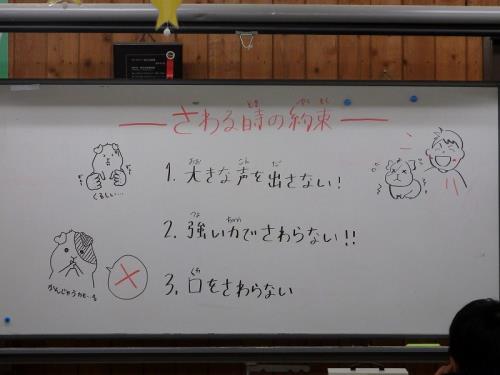 さわる時の約束
1. 大きな声を出さない!
くるしい…
2. 強い力でさわらない!!
3. 口をさわらない